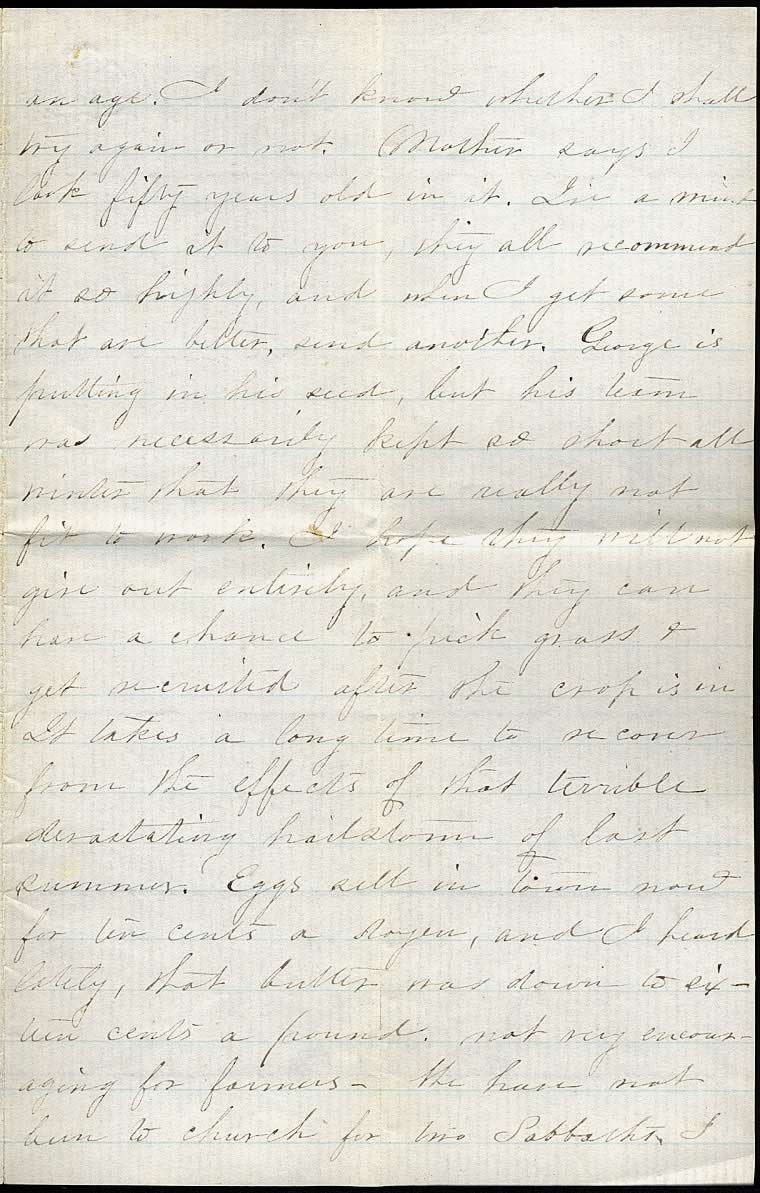 an age. I don't know whether I shall
try again or not. Mother says I
look fifty years old in it. I've a mind
to send it to you, they all recommend
it so highly, and when I get some
that are better, send another. George is
putting in his seed, but his team
was necessarily kept so short all
winter that they are really not
fit to work. I hope they will not
give out entirely, and they can
have a chance to pick grass &
get recruited after the crop is in
It takes a long time to recover
from the effects of that terrible
devastating hailstorm of last
summer. Eggs sell in town now
for ten cents a dozen, and I heard
lately, that butter was down to six-
teen cents a pound. not very encour-
aging for farmers - We have not
been to church for two Sabbaths, I